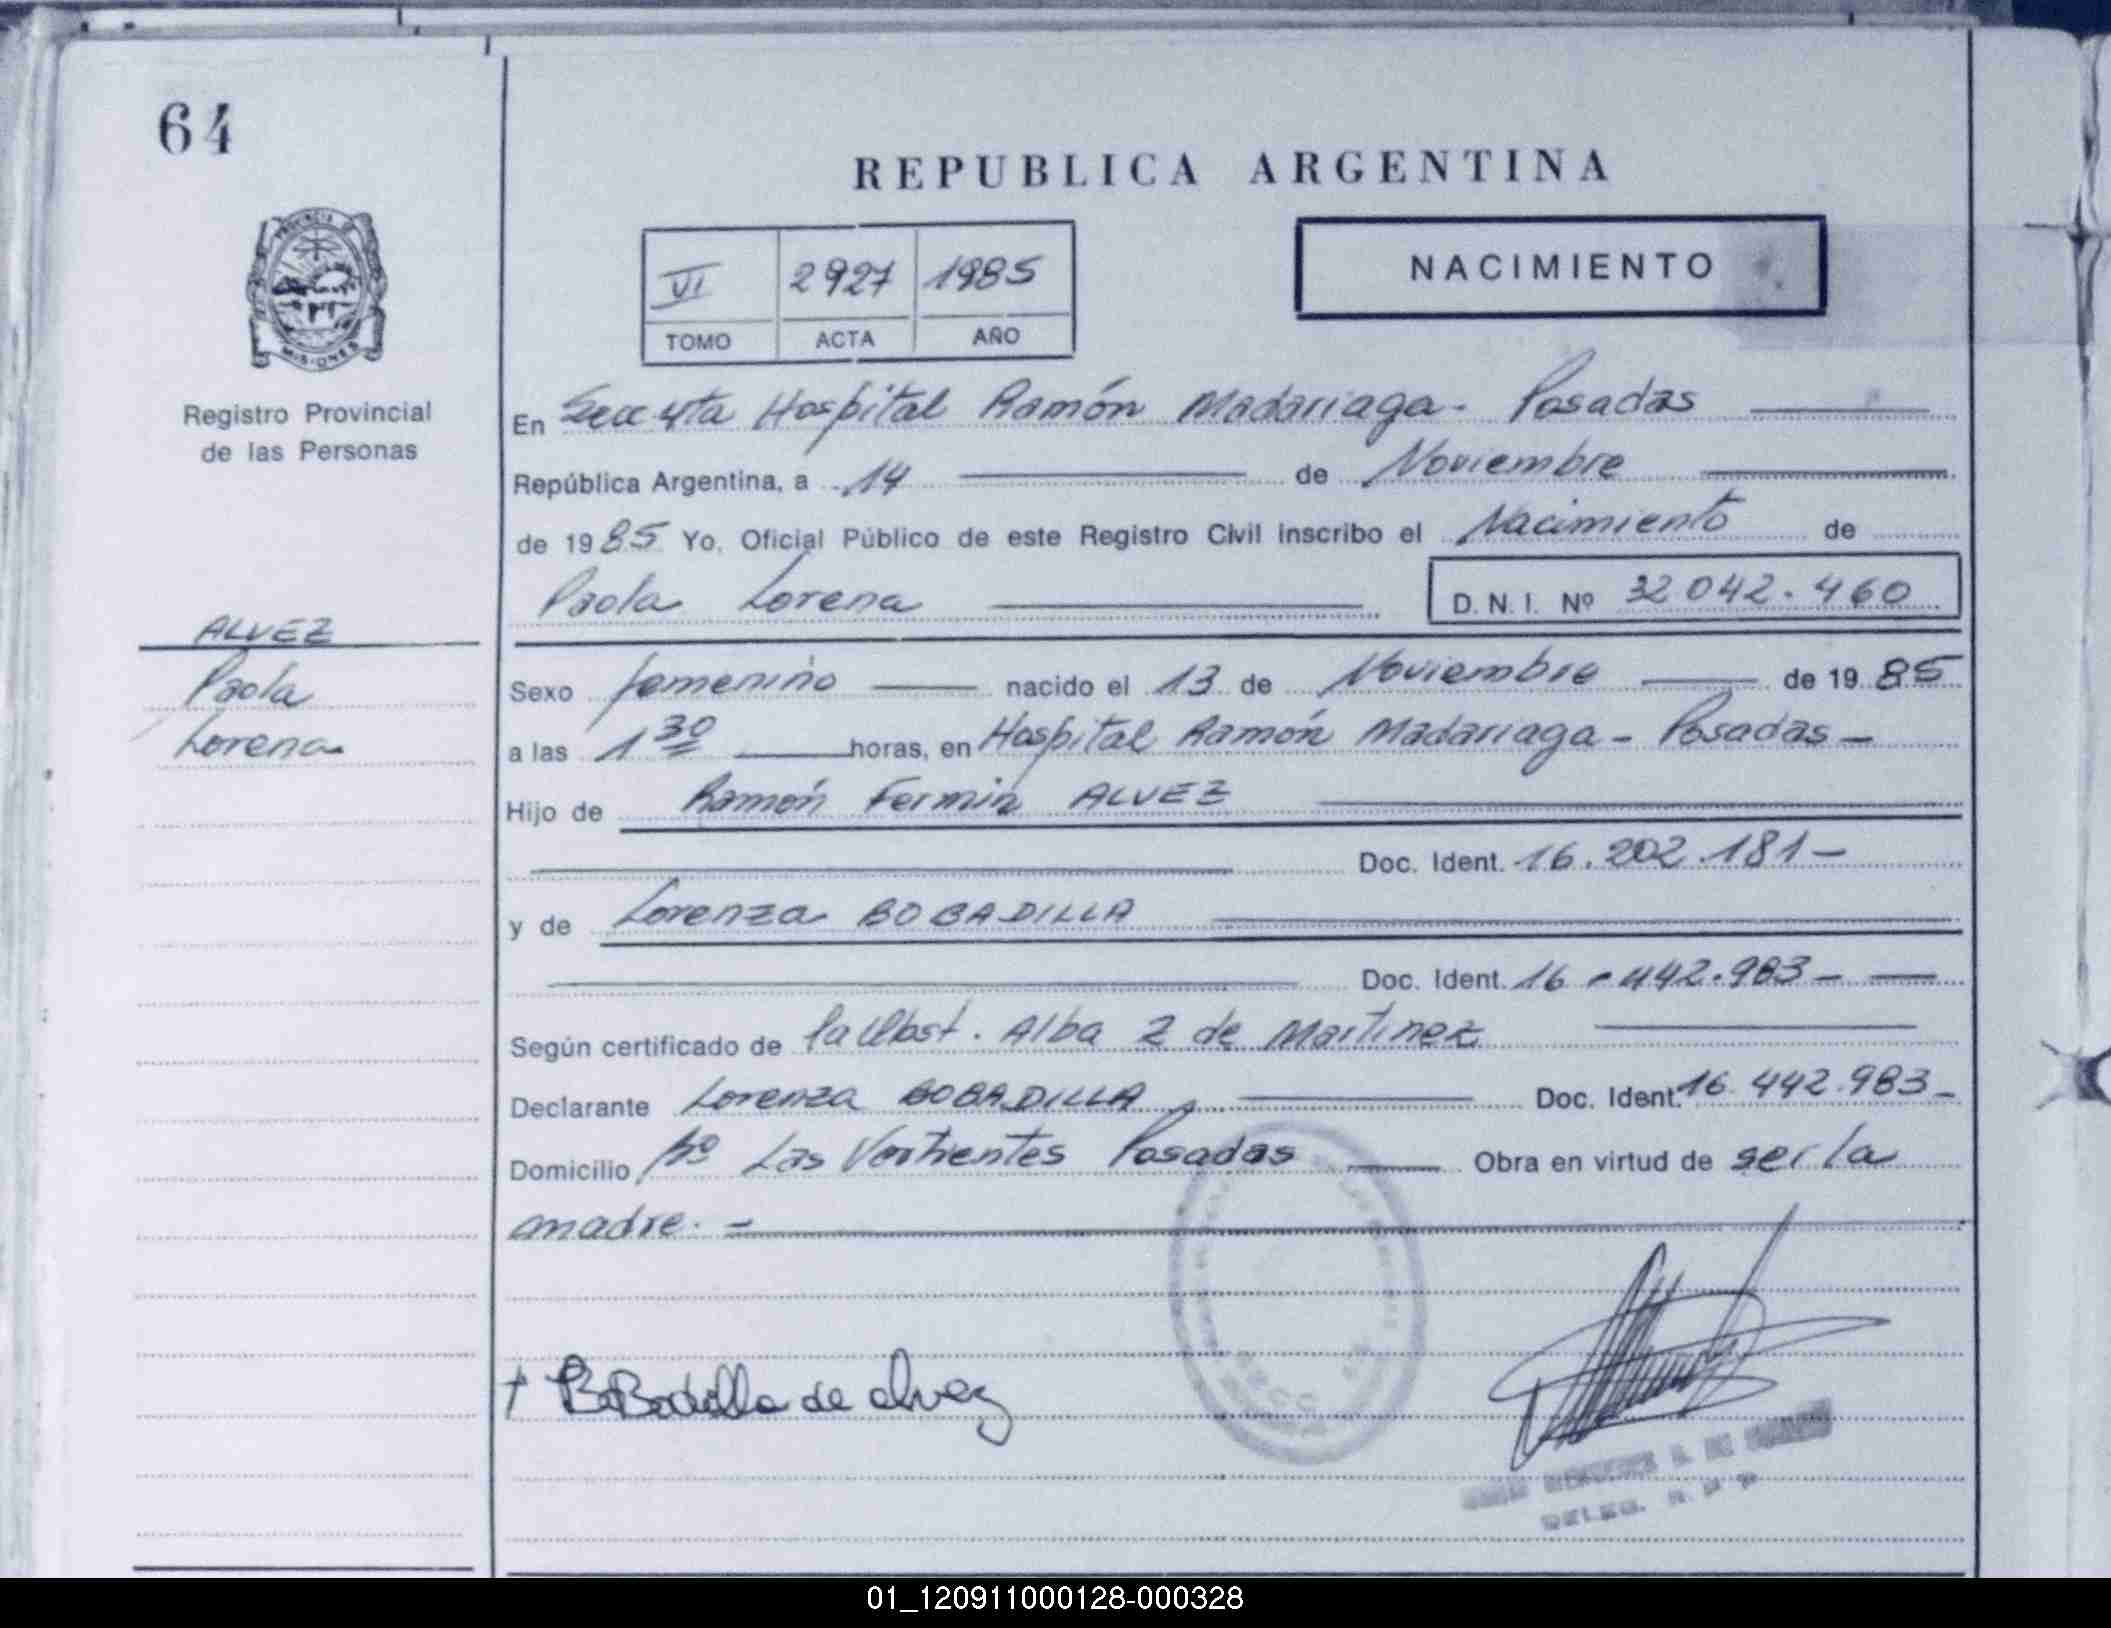 64
REPUBLICA ARGENTINA
PROVINCIA DE
MISIONES
Registro Provincial
de las Personas
VI 2927 1985
TOMO ACTA AÑO
NACIMIENTO
En Secc 4ta Hospital Ramón Madariaga - Posadas
República Argentina, a 14 de Noviembre
de 1985 Yo, Oficial Público de este Registro Civil inscribo el Nacimiento de
Paola Lorena D.N.I. Nº 32 042.460
ALVEZ
Paola
Lorena
Sexo femenino nacido el 13 de Noviembre de 1985
a las 1 30 horas, en Hospital Ramón Madariaga - Posadas -
Hijo de Ramón Fermin ALVEZ
Doc. Ident. 16.202.181 -
y de Lorenza BOBADILLA
Doc. Ident. 16.442.983 -
Según certificado de la Obst. Alba Z de Martinez
Declarante Lorenza BOBADILLA Doc. Ident. 16.442.983 -
Domicilio Bº Las Vertientes Posadas Obra en virtud de ser la
madre. -
BoBadilla de alvez
DELEG. R. P. P
01_120911000128-000328